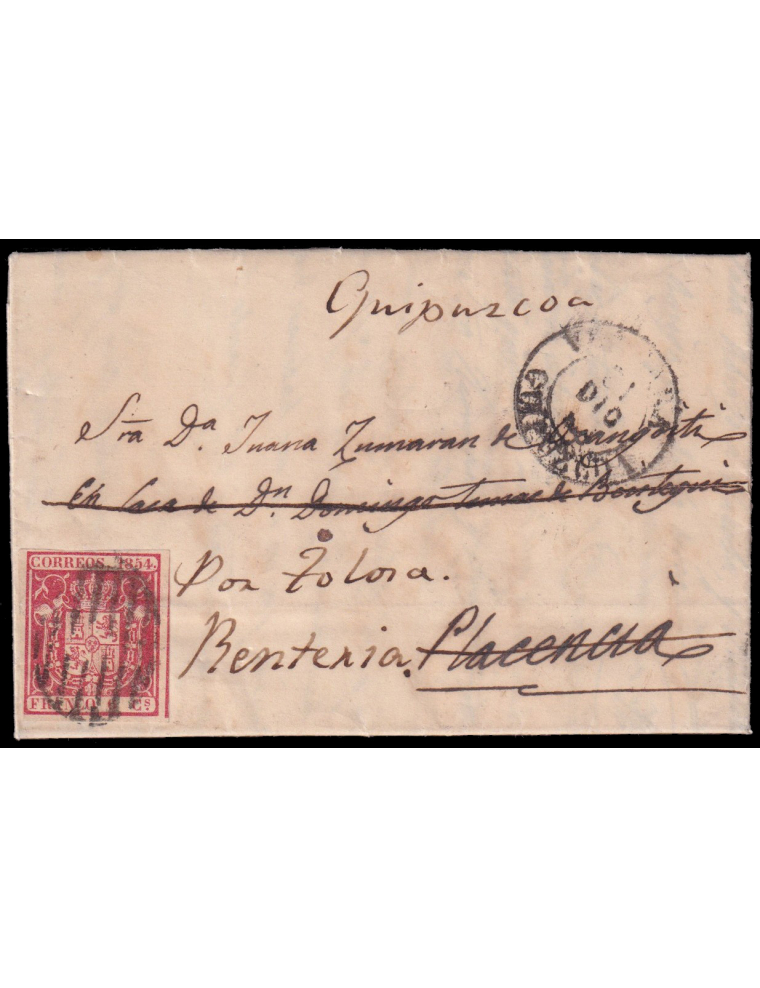 Guipuzcoa
Sra Da Juana Zumaran de
En Casa de Dn Domingo
CORREOS. 1854.
Por Tolosa.
Renteria. Placencia
FRANCO 6 Cs
DIC